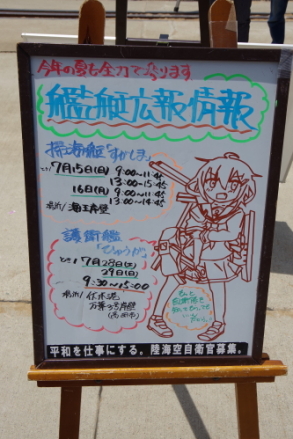 今年の夏も全力で参ります
艦艇広報情報
掃海艇「すがしま」
とき/7月15日(日) 9:00〜11:45
13:00〜15:45
16日(月) 9:00〜11:45
13:00〜14:45
場所/海王岸壁
護衛艦
とき/7月28日(土)
29日(日)
9:30〜15:00
場所/伏木港
万葉3号岸壁
(高岡市)
平和を仕事にする。陸海空自衛官募集。